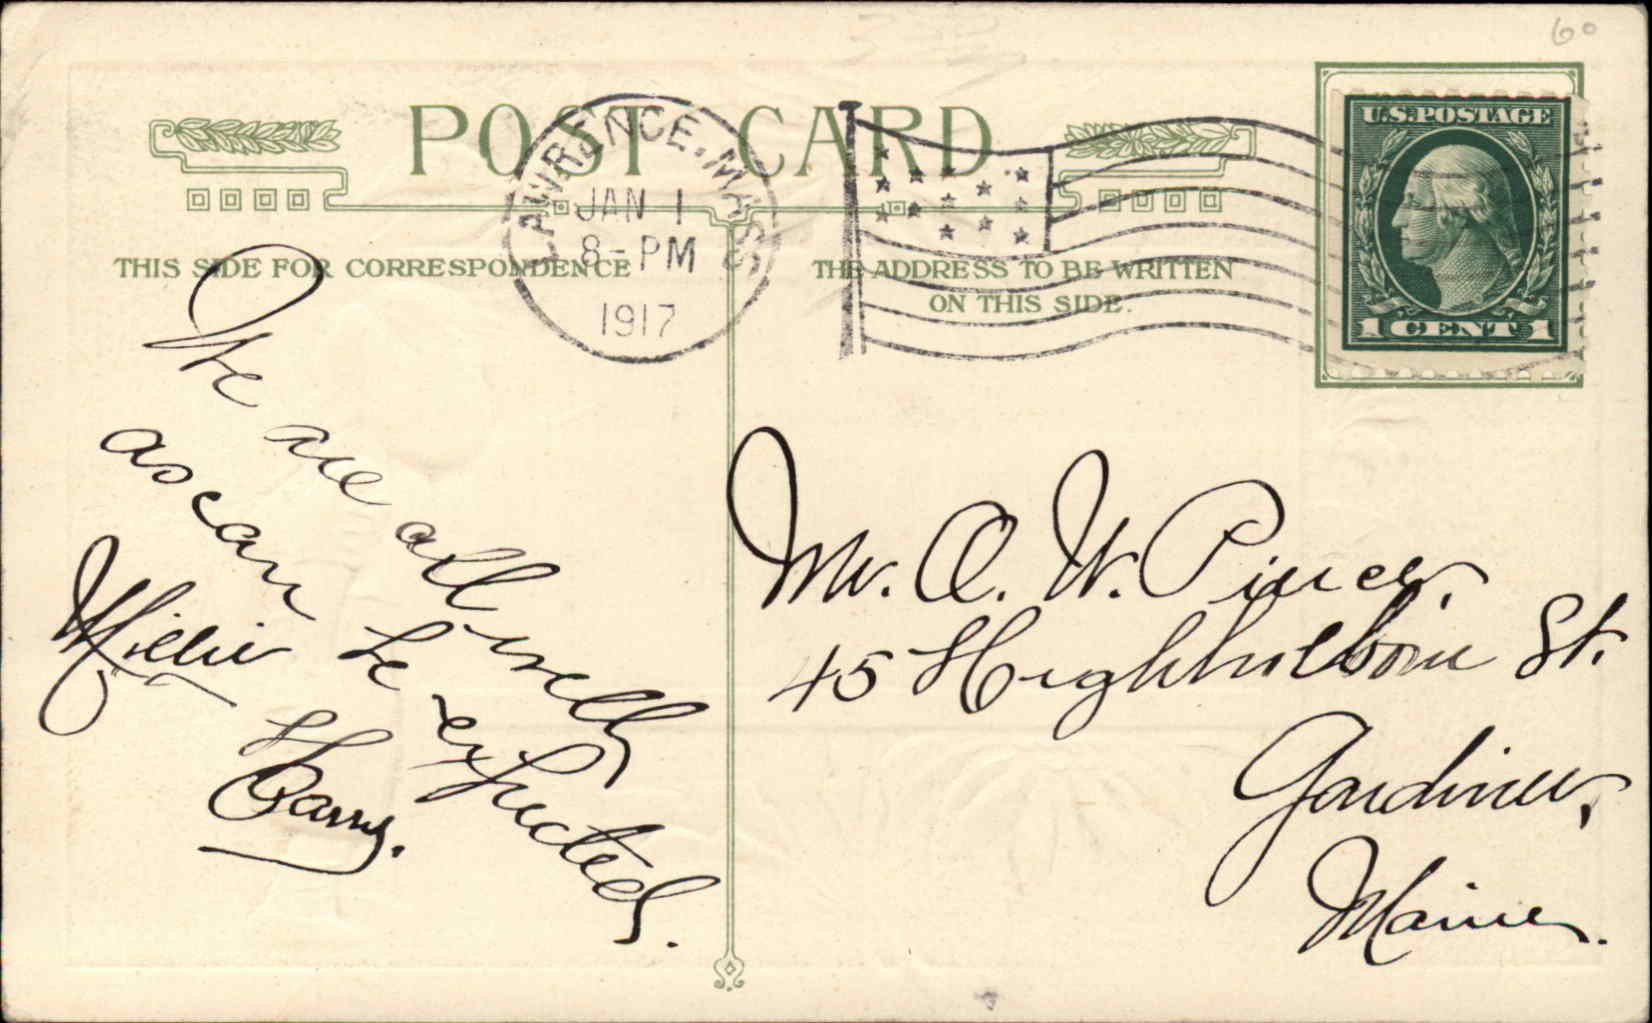 60
POST CARD
LAWRENCE, MASS
JAN 1
8-PM
1917
U.S. POSTAGE
1 CENT 1
THIS SIDE FOR CORRESPONDENCE
THE ADDRESS TO BE WRITTEN
ON THIS SIDE.
We are all well
as can be expected.
Millie
Harry.
Mr. A. W. Pierce,
45 Highholborn St.
Gardiner,
Maine.